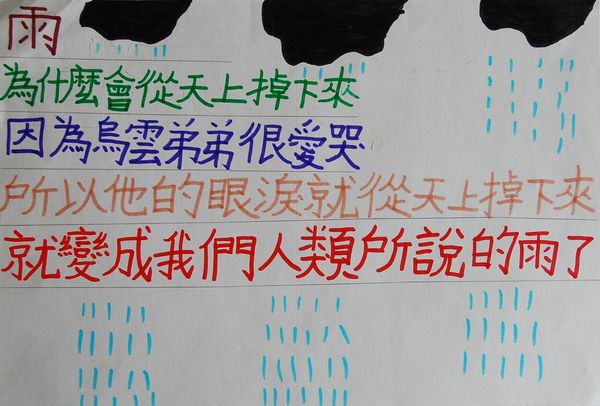 雨
為什麼會從天上掉下來
因為烏雲弟弟很愛哭
所以他的眼淚就從天上掉下來
就變成我們人類所說的雨了